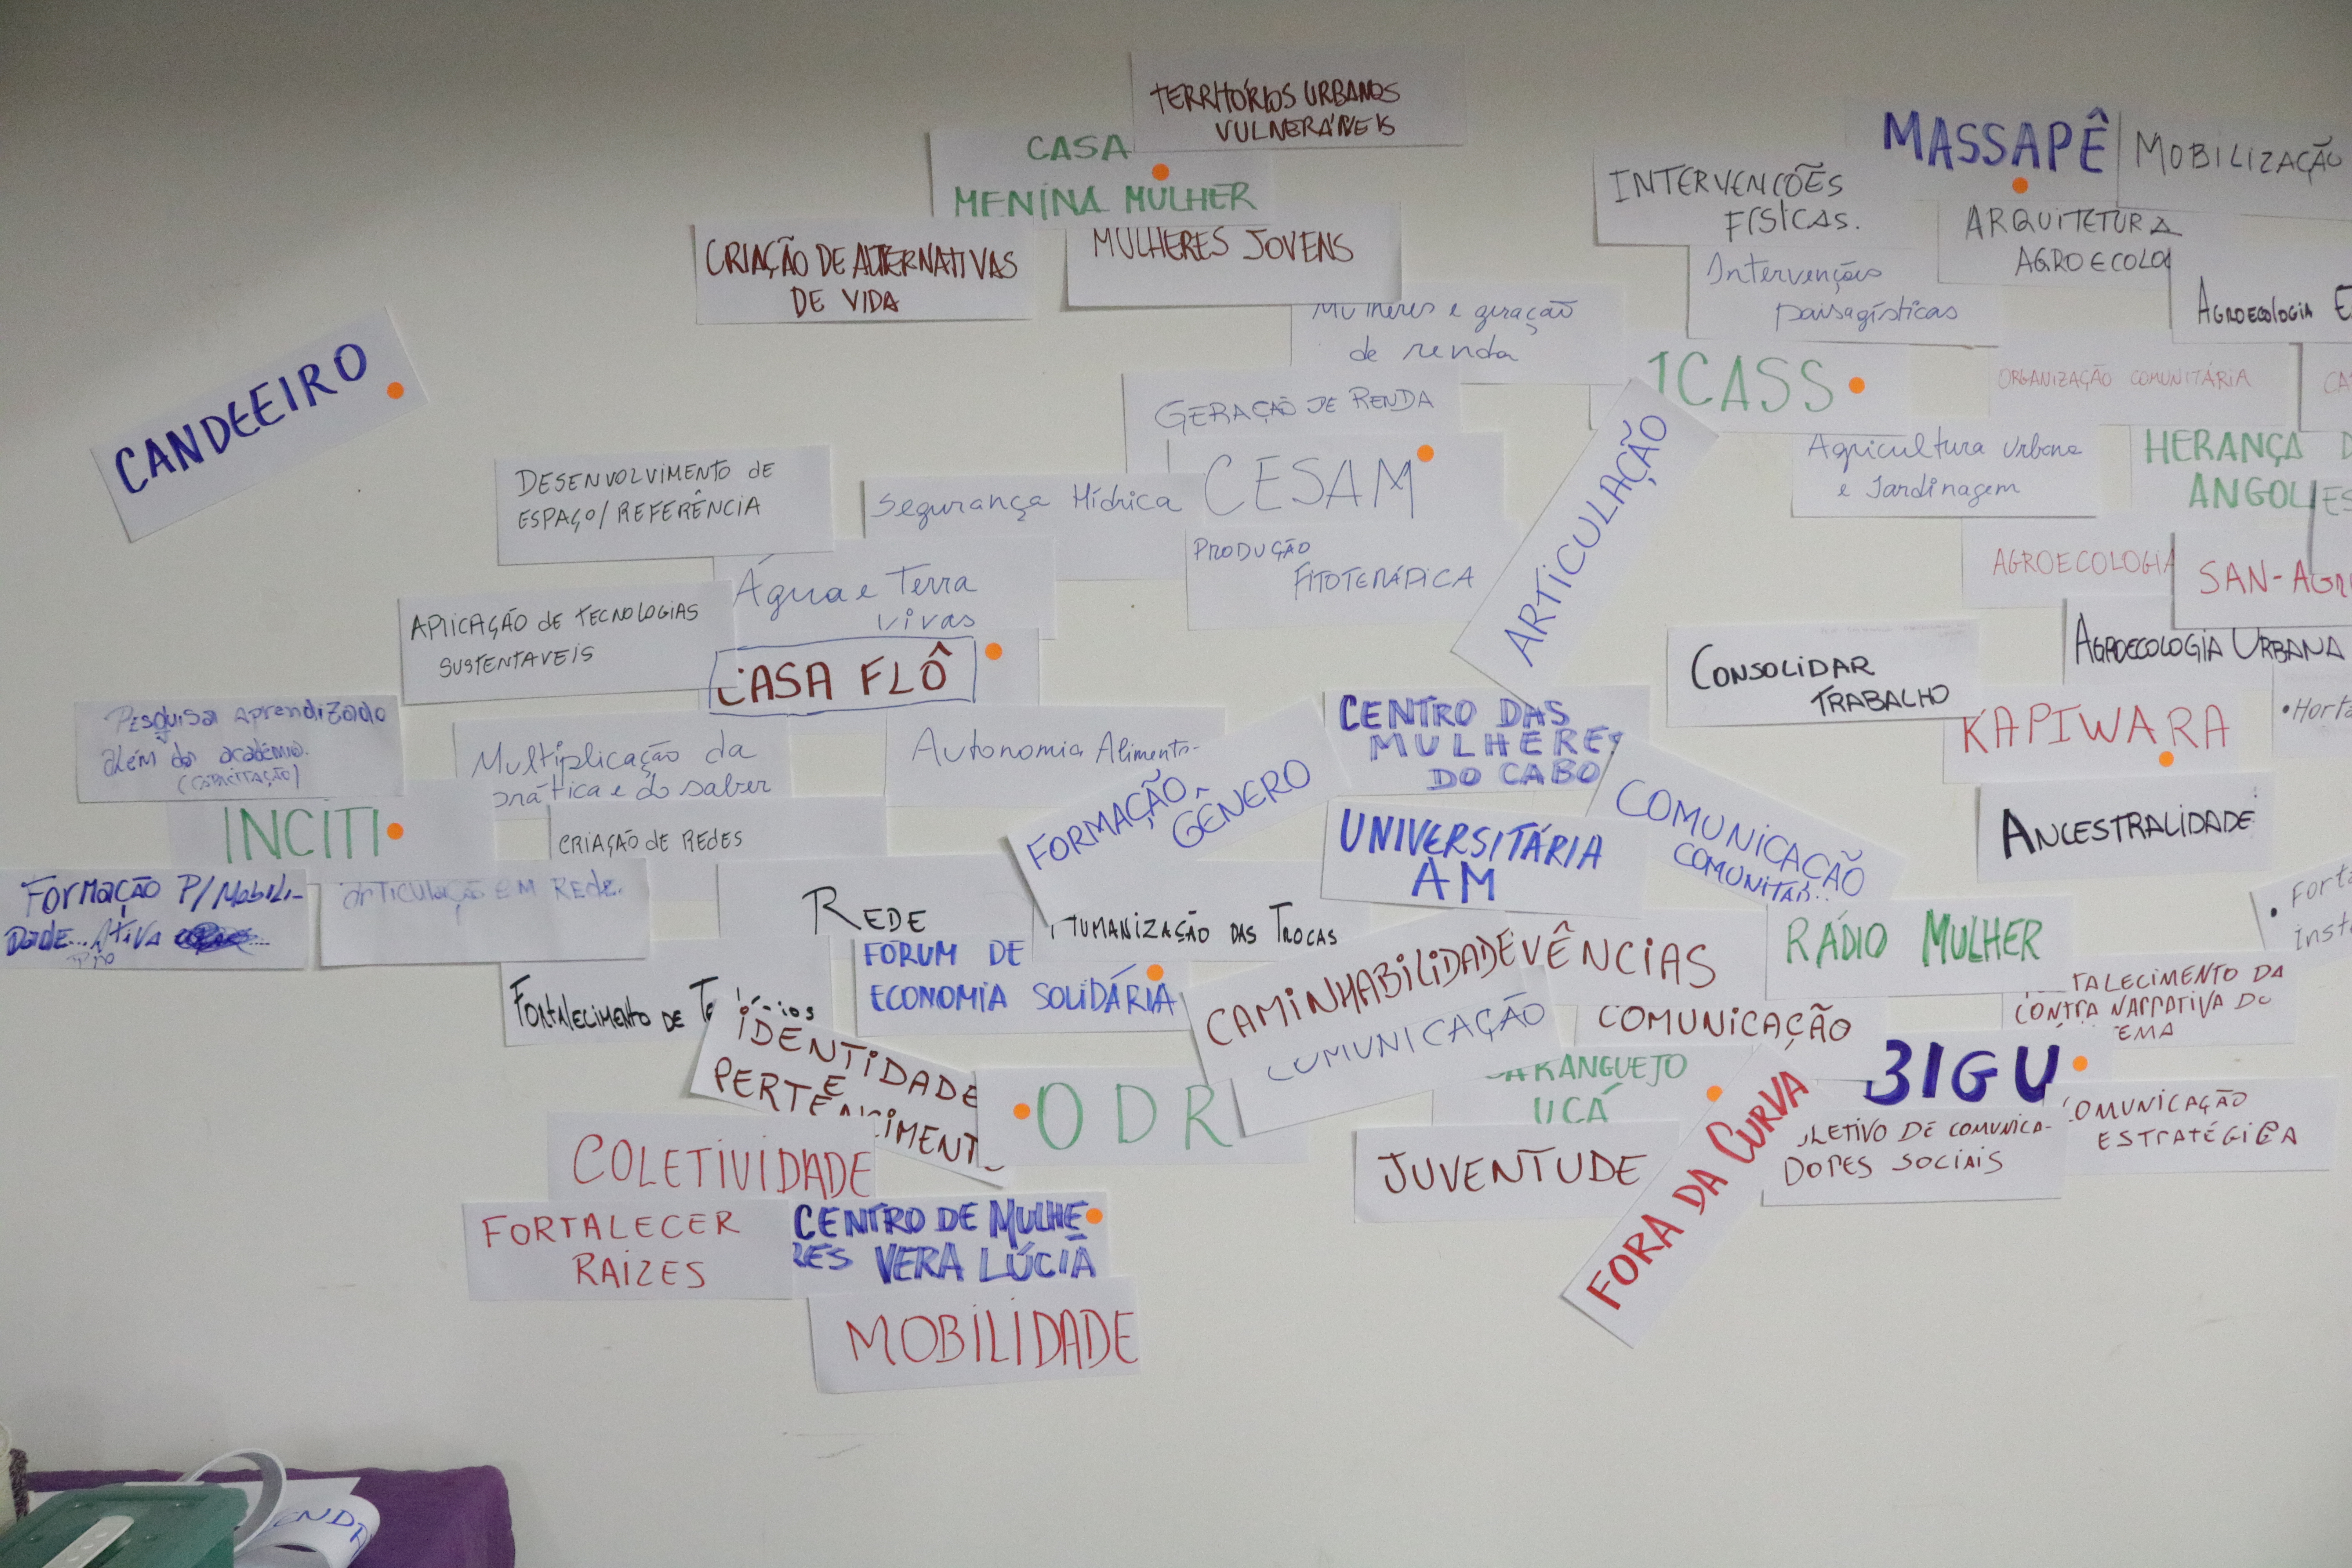 TERRITÓRIOS URBANOS
VULNERÁVEIS
CASA
MENINA MULHER
CRIAÇÃO DE ALTERNATIVAS
DE VIDA
MULHERES JOVENS
Mulheres e geração
de renda
GERAÇÃO DE RENDA
CESAM
Segurança Hídrica
PRODUÇÃO
FITOTERÁPICA
MASSAPÊ
MOBILIZAÇÃO
INTERVENÇÕES
FÍSICAS.
ARQUITETURA
AGROECOLO
Intervenções
paisagísticas
AGROECOLOGIA E
ICASS
ORGANIZAÇÃO COMUNITÁRIA
CA
Agricultura Urbana
e Jardinagem
HERANÇA D
ANGOL
ES
AGROECOLOGIA
SAN-AGR
AGROECOLOGIA URBANA
ARTICULAÇÃO
CONSOLIDAR
TRABALHO
KAPIWARA
• Horta
ANCESTRALIDADE
• Forta
inst
CANDEEIRO
DESENVOLVIMENTO DE
ESPAÇO/REFERÊNCIA
Água e Terra
vivas
APLICAÇÃO DE TECNOLOGIAS
SUSTENTAVEIS
CASA FLÔ
Multiplicação da
prática e do saber
Autonomia Alimenta-
CRIAÇÃO DE REDES
Pesquisa aprendizado
além da academia.
(CAPACITAÇÃO)
INCITI
FORMAÇÃO P/ MOBILI-
DADE... ATIVA
ARTICULAÇÃO EM REDE.
REDE
FORMAÇÃO
GÊNERO
CENTRO DAS
MULHERES
DO CABO
UNIVERSITÁRIA
AM
COMUNICAÇÃO
COMUNITÁ
HUMANIZAÇÃO DAS TROCAS
FORUM DE
ECONOMIA SOLIDÁRIA
FORTALECIMENTO DE
IDENTIDADE
E
PERTENCIMENT
CAMINHABILIDADE
VÊNCIAS
COMUNICAÇÃO
RÁDIO MULHER
COMUNICAÇÃO
TALECIMENTO DA
CONTRA NARRATIVA DO
EMA
ODR
ARANGUEJO
UCÁ
JUVENTUDE
FORA DA CURVA
BIGU
OLETIVO DE COMUNICA-
DORES SOCIAIS
COMUNICAÇÃO
ESTRATÉGICA
COLETIVIDADE
FORTALECER
RAIZES
CENTRO DE MULHE
RES VERA LÚCIA
MOBILIDADE
ENDA